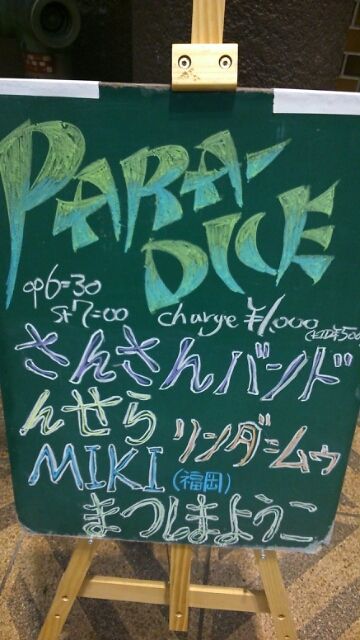 PARA-
DICE
op6=30
st7=00 charge ¥1,000
さんさんバンド
んせら リンダ=ムゥ
MIKI (福岡)
まつしまようこ